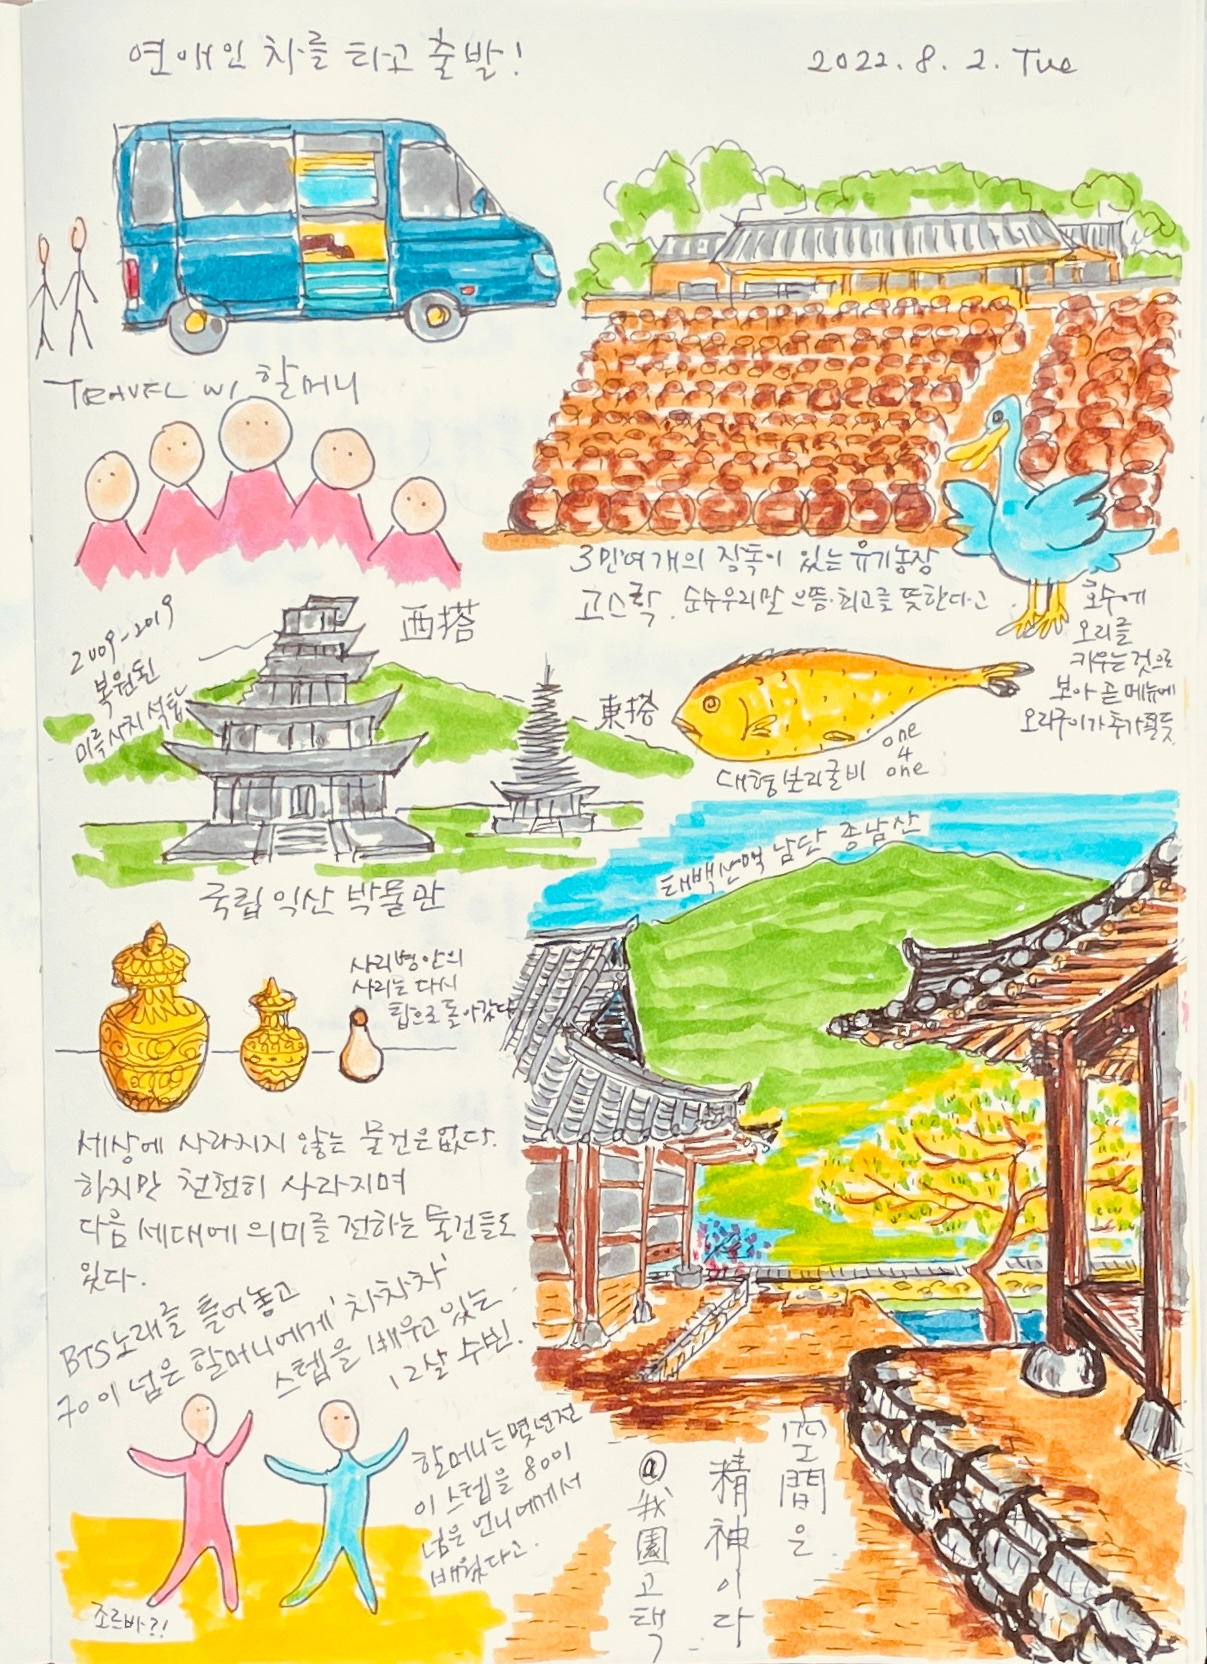 연애인 차를 타고 출발!
2022. 8. 2. Tue
TRAVEL W/ 할머니
3만여개의 짐독이 있는 유기농장
고스락. 순수우리말 으뜸·최고를 뜻한다고
호수에
오리를
키우는 것으로
보아 곧 메뉴에
오리구이가 추가될듯
2009-2019
복원된
미륵사지 석탑
西塔
東塔
one
4
one
대형보리굴비
국립 익산 박물관
태백산맥 남단 종남산
사리병안의
사리는 다시
탑으로 돌아갔다
세상에 사라지지 않는 물건은 없다.
하지만 천천히 사라지며
다음 세대에 의미를 전하는 물건들도
있다.
BTS노래를 틀어놓고
70이 넘은 할머니에게 '차차차'
스텝을 배우고 있는
12살 수빈.
할머니는 몇년전
이 스텝을 80이
넘은 언니에게서
배웠다고.
조르바?!
空間은
精神이다
@我園고택